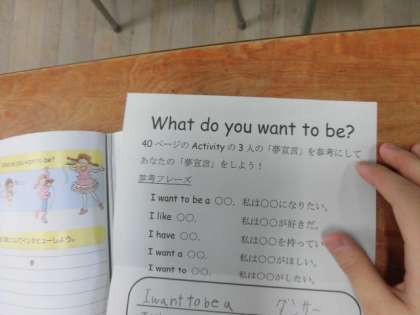 What do you want to be?
40 ページの Activity の 3 人の「夢宣言」を参考にして
あなたの「夢宣言」をしよう！
参考フレーズ
I want to be a ○○. 私は○○になりたい。
I like ○○. 私は○○が好きだ。
I have ○○. 私は○○を持ってい
I want a ○○. 私は○○がほしい。
I want to ○○. 私は○○がしたい。
I want to be a ダンサー
What do you want to be?
インタビューしよう。